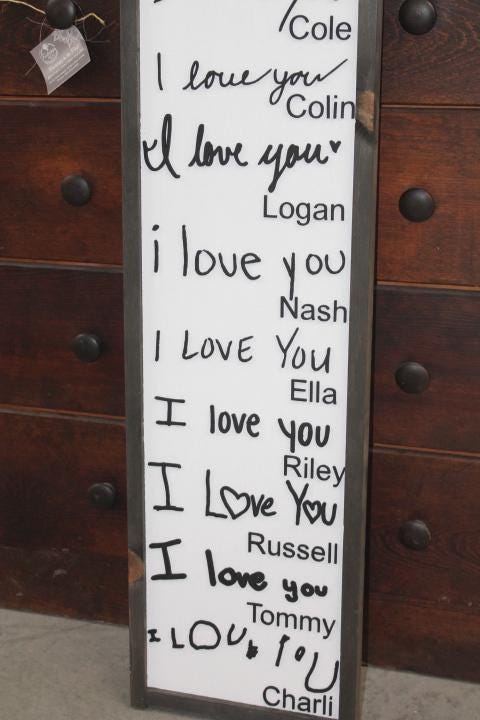 Cole
I love you
Colin
I love you
Logan
i love you
Nash
I LOVE YOU
Ella
I love you
Riley
I LOve You
Russell
I love you
Tommy
I LOVE YOU
Charli